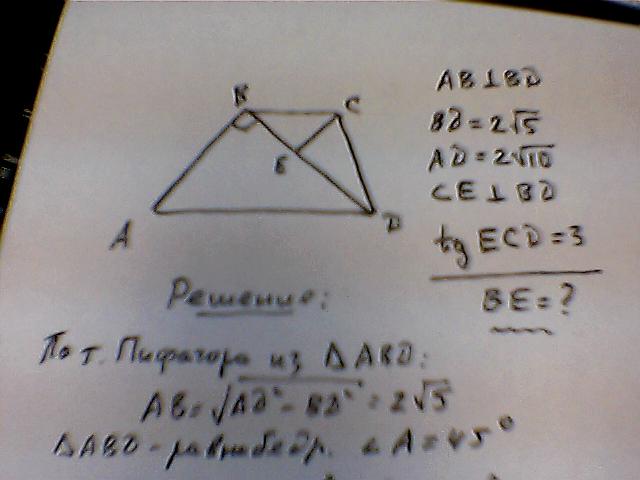 B
C
E
A
D
AB ⊥ BD
BD = 2√5
AD = 2√10
CE ⊥ BD
tg ECD = 3
BE = ?
Решение:
По т. Пифагора из ΔABD:
AB = √AD² - BD² = 2√5
ΔABD - равнобедр. ∠A = 45°